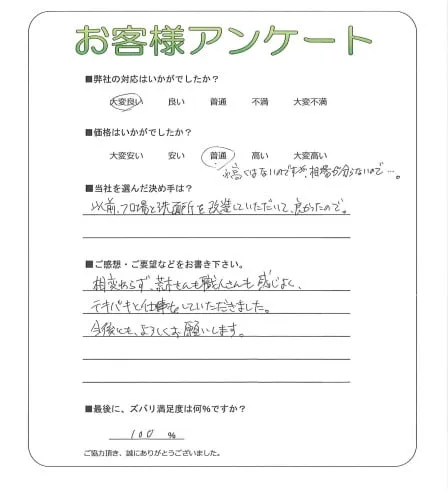 お客様アンケート
■弊社の対応はいかがでしたか？
大変良い 良い 普通 不満 大変不満
■価格はいかがでしたか？
大変安い 安い 普通 高い 大変高い
高くはないのですが、相場が分らないので…。
■当社を選んだ決め手は？
以前、フロ場と洗面所を改造していただいて、良かったので。
■ご感想・ご要望などをお書き下さい。
相変わらず、荒木さんも職人さんも感じよく、
テキパキと仕事をしていただきました。
今後とも、よろしくお願いします。
■最後に、ズバリ満足度は何％ですか？
100 %
ご協力頂き、誠にありがとうございました。